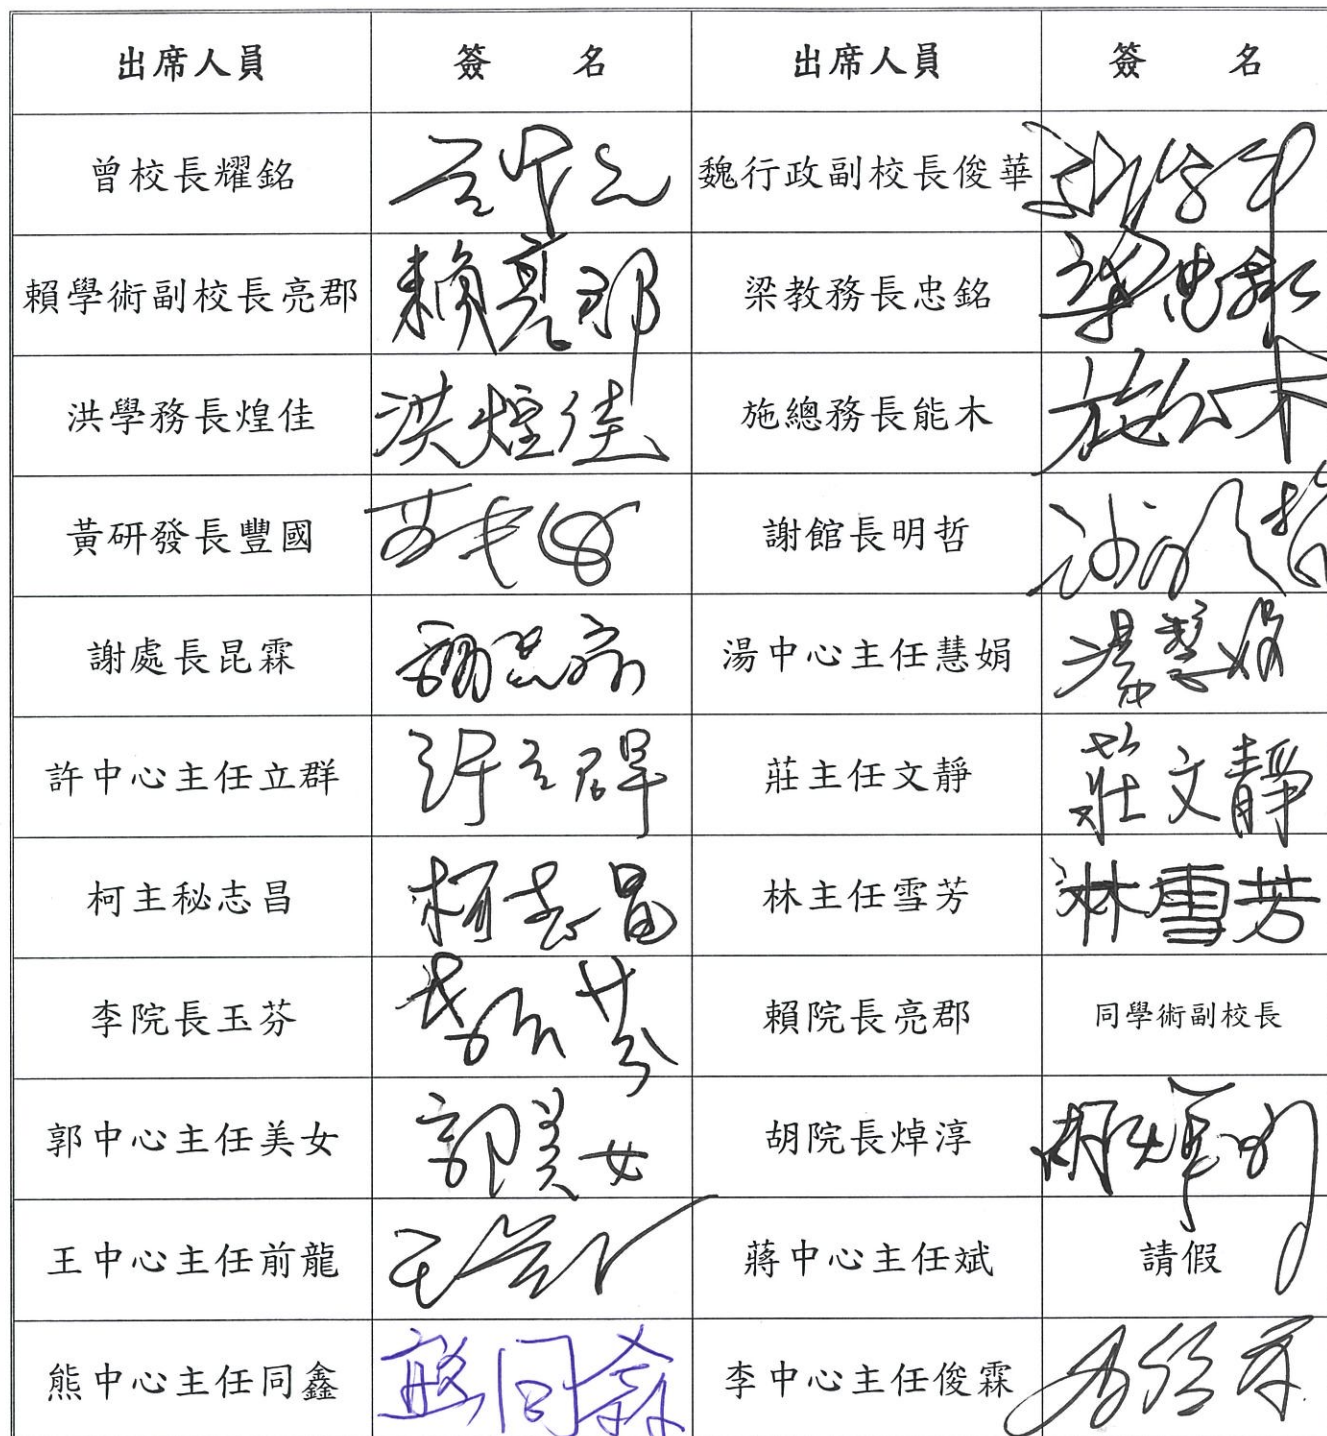 出席人員 簽 名 出席人員 簽 名
曾校長耀銘 魏行政副校長俊華
賴學術副校長亮郡 賴亮郡 梁教務長忠銘 梁忠銘
洪學務長煌佳 洪煌佳 施總務長能木 施能木
黃研發長豐國 謝館長明哲
謝處長昆霖 謝昆霖 湯中心主任慧娟 湯慧娟
許中心主任立群 許立群 莊主任文靜 莊文靜
柯主秘志昌 柯志昌 林主任雪芳 林雪芳
李院長玉芬 李玉芬 賴院長亮郡 同學術副校長
郭中心主任美女 郭美女 胡院長焯淳
王中心主任前龍 蔣中心主任斌 請假
熊中心主任同鑫 熊同鑫 李中心主任俊霖